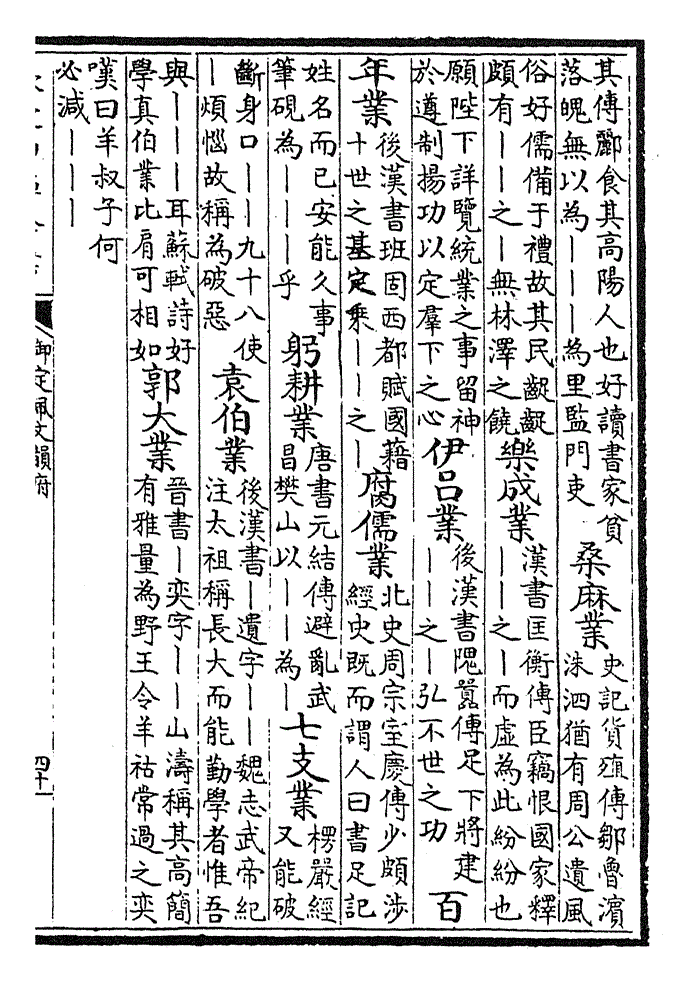 其傳酈食其高陽人也好讀書家貧
落魄無以為｜｜｜為里監門吏
桑麻業
史記貨殖傳鄒魯濱
洙泗猶有周公遺風
俗好儒備于禮故其民齪齪
頗有｜｜之｜無林澤之饒
樂成業
漢書匡衡傳臣竊恨國家釋
｜｜之｜而虛為此紛紛也
願陛下詳覽統業之事留神
於遵制揚功以定羣下之心
伊呂業
後漢書隗囂傳足下將建
｜｜之｜弘不世之功
百
年業
後漢書班固西都賦國藉
十世之基定乘｜｜之｜
腐儒業
北史周宗室慶傳少頗涉
經史既而謂人曰書足記
姓名而已安能久事
筆硯為｜｜｜乎
躬耕業
唐書元結傳避亂武
昌樊山以｜｜為｜
七支業
楞嚴經
又能破
斷身口｜｜九十八使
｜煩惱故稱為破惡
袁伯業
後漢書｜遺字｜｜魏志武帝紀
注太祖稱長大而能勤學者惟吾
與｜｜｜耳蘇軾詩好
學真伯業比肩可相如
郭大業
晉書｜奕字｜｜山濤稱其高簡
有雅量為野王令羊祜常過之奕
嘆曰羊叔子何
必減｜｜｜
御定佩文韻府
四十一